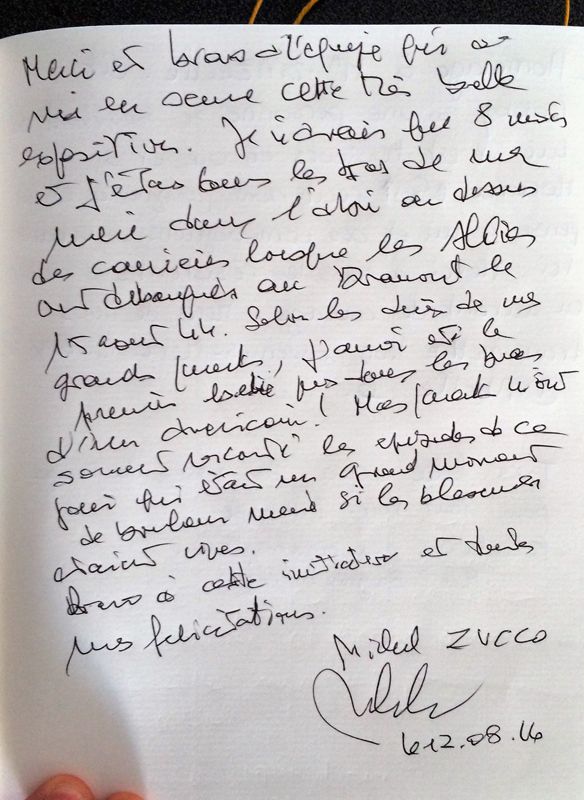 Merci et bravo à l'équipe qui a
mis en scène cette très belle
exposition. Je n'avais que 8 mois
et j'étais dans les bras de ma
mère dans l'abri au dessus
des carrières lorsque les Alliés
ont débarqué au Dramont le
15 aout 44. Selon les dires de mes
grands parents, j'aurai été le
premier bébé pris dans les bras
d'un américain! Mes parents m'ont
souvent raconté les épisodes de ce
jour qui était un grand moment
de bonheur même si les blessures
étaient vives.
Bravo à cette initiative et toutes
mes félicitations.
Michel ZUCCO
le 12.08.16